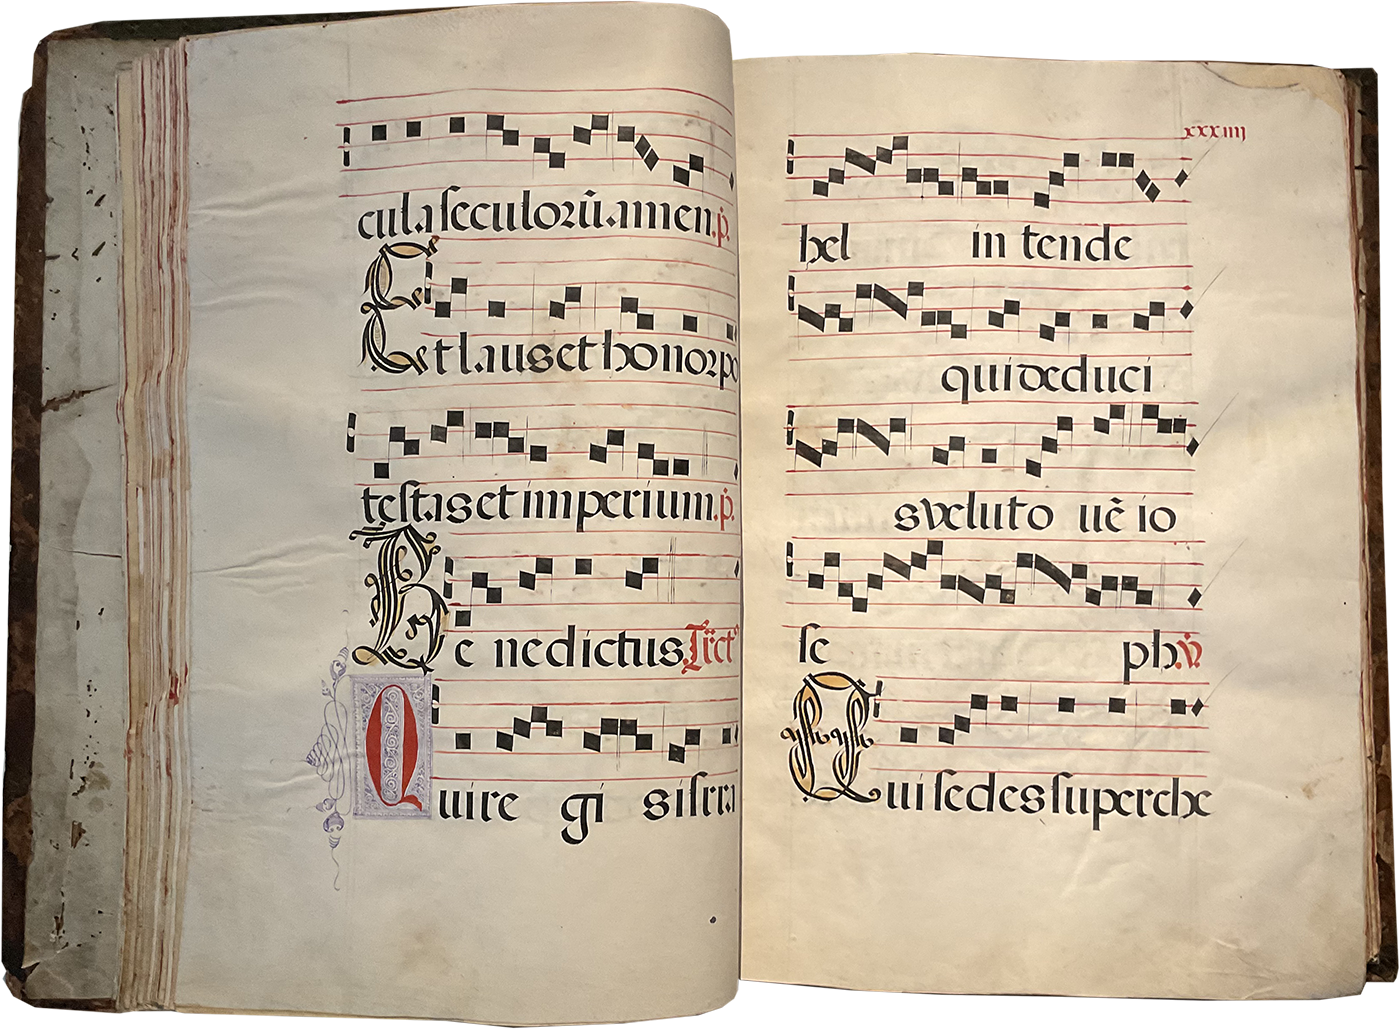 cula seculorũ. amen. p̃.
Et laus et honor po
testas et imperium. p̃.
Be nedictus. Tr̃ct⁹
Qui re gi s isrra
xxxiiij
hel in tende
qui deduci
s velut o uẽ io
se ph. ṽ
Qui sedes super che